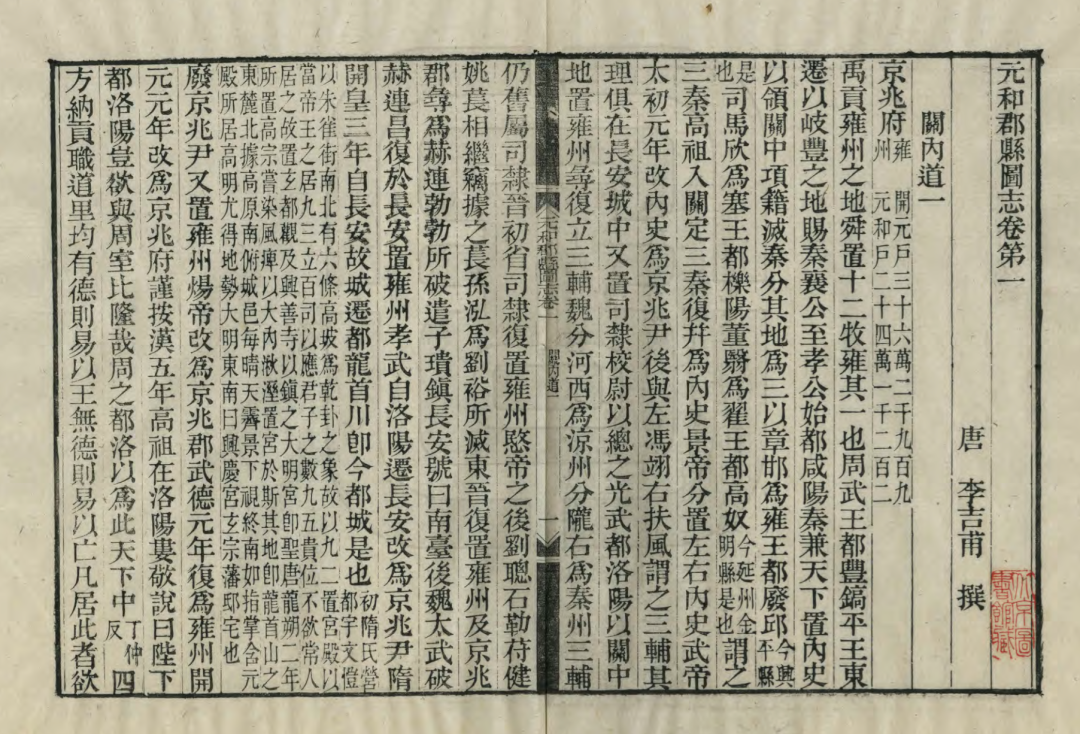 元和郡縣圖志卷第一
唐 李吉甫 撰
關內道一
京兆府雍州 開元戶三十六萬二千九百九 元和戶二十四萬一千二百二
禹貢雍州之地舜置十二牧雍其一也周武王都豐鎬平王東
遷以岐豐之地賜秦襄公至孝公始都咸陽秦兼天下置內史
以領關中項籍滅秦分其地爲三以章邯爲雍王都廢邱今興平縣
是也司馬欣爲塞王都櫟陽董翳爲翟王都高奴今延州金明縣是也謂之
三秦高祖入關定三秦復幷爲內史景帝分置左右內史武帝
太初元年改內史爲京兆尹後與左馮翊右扶風謂之三輔其
理俱在長安城中又置司隸校尉以總之光武都洛陽以關中
地置雍州尋復立三輔魏分河西爲涼州分隴右爲秦州三輔
元和郡縣圖志卷一 關內道一 一
仍舊屬司隸晉初省司隸復置雍州愍帝之後劉聰石勒苻健
姚萇相繼竊據之萇孫泓爲劉裕所滅東晉復置雍州及京兆
郡尋爲赫連勃勃所破遣子璝鎮長安號曰南臺後魏太武破
赫連昌復於長安置雍州孝武自洛陽遷長安改爲京兆尹隋
開皇三年自長安故城遷都龍首川卽今都城是也初隋氏營都宇文愷
以朱雀街南北有六條高坡爲乾卦之象故以九二置宮殿以
當帝王之居九三立百司以應君子之數九五貴位不欲常人
居之故置玄都觀及興善寺以鎮之大明宮卽聖唐龍朔二年
所置高宗嘗染風痺以大內湫溼置宮於斯其地卽龍首山之
東麓北據高原南俯城邑每晴天霽景下視終南如指掌含元
殿所居高明尤得地勢大明東南曰興慶宮玄宗藩邸宅也
廢京兆尹又置雍州煬帝改爲京兆郡武德元年復爲雍州開
元元年改爲京兆府謹按漢五年高祖在洛陽婁敬說曰陛下
都洛陽豈欲與周室比隆哉周之都洛以爲此天下中丁仲反四
方納貢職道里均有德則易以王無德則易以亡凡居此者欲